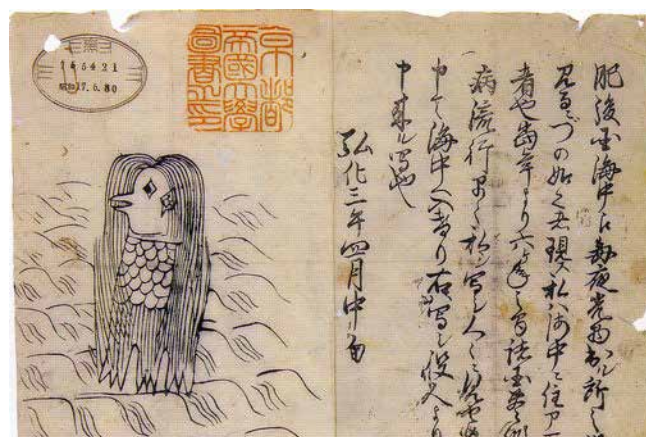 肥後国海中え毎夜光物出ル所之
見るニづの如之者現ス私ハ海中ニ住ア
者也当年より六ヶ年之間諸国豊作
病流行早々私ヲ写シ人々ニ見セ候
申て海中へ入けり右ハ写シ役人より
申来ル写也
弘化三年四月中旬
京都
帝國大學
圖書之印
昭和17.6.30